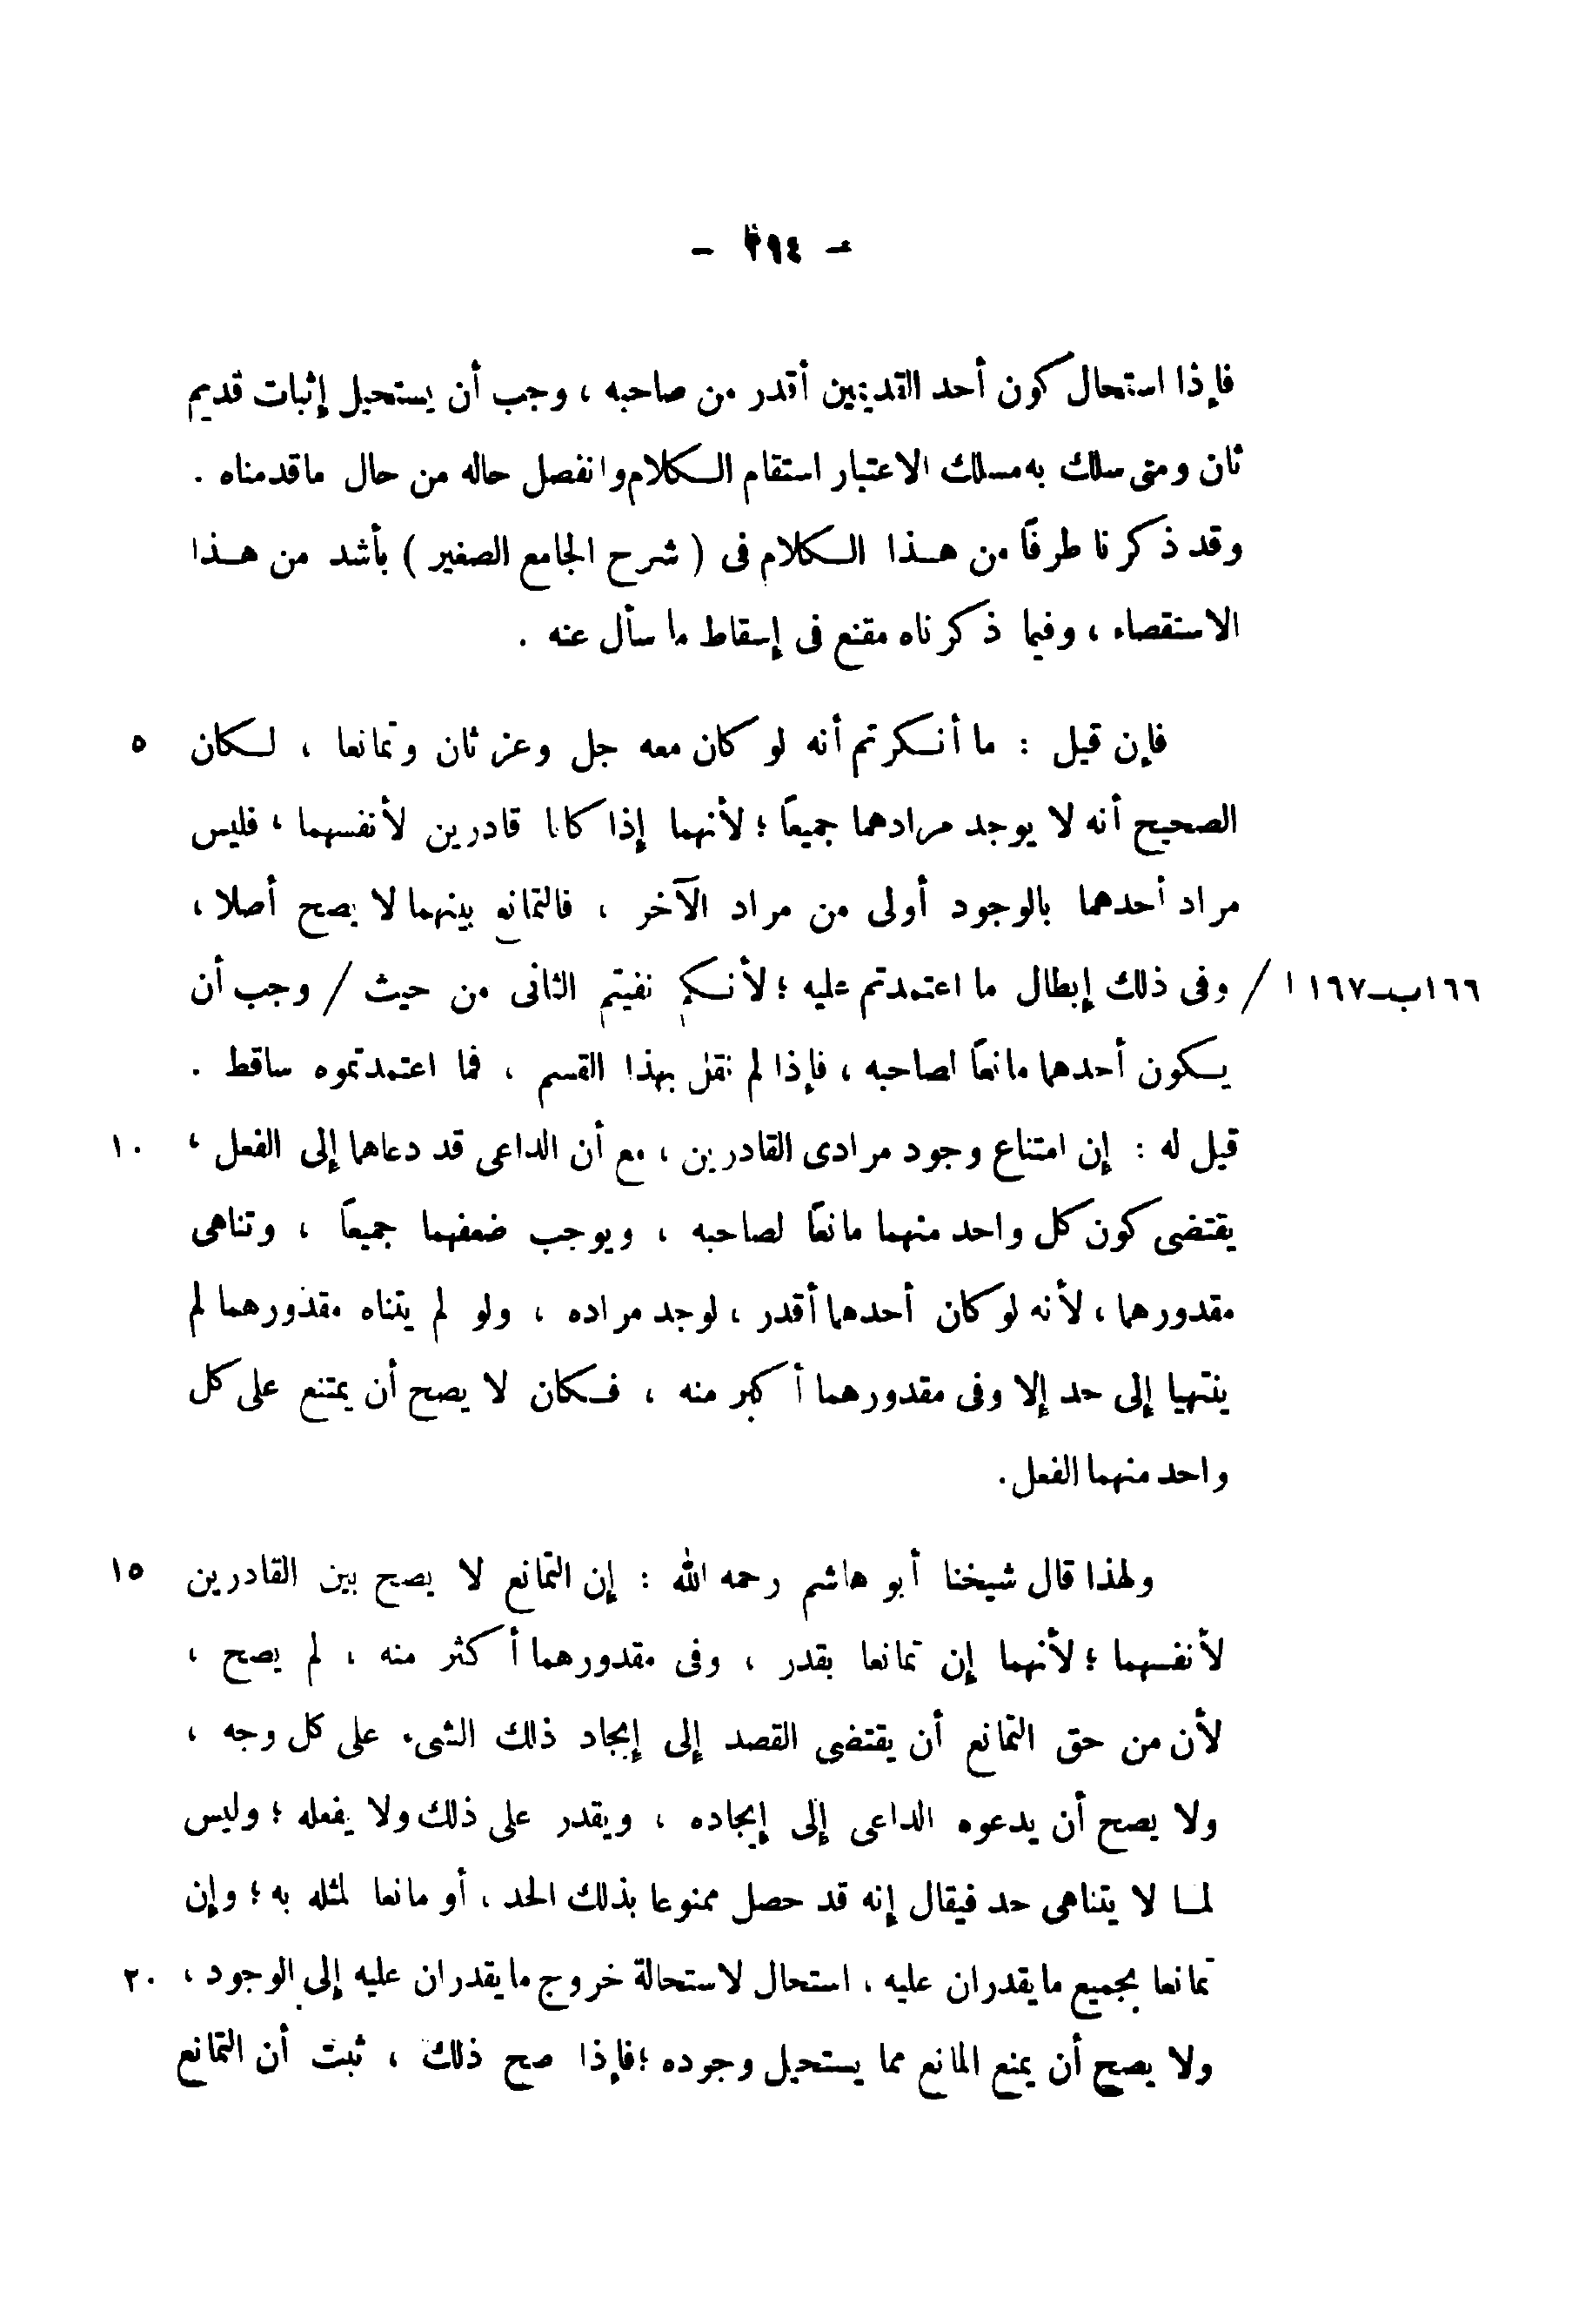 - ٢٩٤ -
فإذا استحال كون أحد القديمين أقدر من صاحبه ، وجب أن يستحيل إثبات قديم
ثان ومتى سلك به مسلك الاعتبار استقام الكلام وانفصل حاله من حال ما قدمناه .
وقد ذكرنا طرفًا من هذا الكلام فى ( شرح الجامع الصغير ) بأشد من هذا
الاستقصاء ، وفيما ذكرناه مقنع فى إسقاط ما سأل عنه .
فإن قيل : ما أنكرتم أنه لو كان معه جل وعز ثان وتمانعا ، لكان ٥
الصحيح أنه لا يوجد مرادهما جميعًا ؛ لأنهما إذا كانا قادرين لأنفسهما ، فليس
مراد أحدهما بالوجود أولى من مراد الآخر ، فالتمانع بينهما لا يصح أصلا ،
١٦٦ب-١٦٧ ا / وفى ذلك إبطال ما اعتمدتم عليه ؛ لأنكم نفيتم الثانى من حيث / وجب أن
يكون أحدهما مانعًا لصاحبه ، فإذا لم نقل بهذا القسم ، فما اعتمدتموه ساقط .
قيل له : إن امتناع وجود مرادى القادرين ، مع أن الداعى قد دعاهما إلى الفعل ، ١٠
يقتضى كون كل واحد منهما مانعًا لصاحبه ، ويوجب ضعفهما جميعًا ، وتناهى
مقدورهما ، لأنه لو كان أحدهما أقدر ، لوجد مراده ، ولو لم يتناه مقدورهما لم
ينتهيا إلى حد إلا وفى مقدورهما أكبر منه ، فكان لا يصح أن يمتنع على كل
واحد منهما الفعل .
ولهذا قال شيخنا أبو هاشم رحمه الله : إن التمانع لا يصح بين القادرين ١٥
لأنفسهما ؛ لأنهما إن تمانعا بقدر ، وفى مقدورهما أكثر منه ، لم يصح ،
لأن من حق التمانع أن يقتضى القصد إلى إيجاد ذلك الشىء على كل وجه ،
ولا يصح أن يدعوه الداعى إلى إيجاده ، ويقدر على ذلك ولا يفعله ؛ وليس
لما لا يتناهى حد فيقال إنه قد حصل ممنوعا بذلك الحد ، أو مانعا لمثله به ؛ وإن
تمانعا بجميع ما يقدران عليه ، استحال لاستحالة خروج ما يقدران عليه إلى الوجود ، ٢٠
ولا يصح أن يمنع المانع مما يستحيل وجوده ؛ فإذا صح ذلك ، ثبت أن التمانع